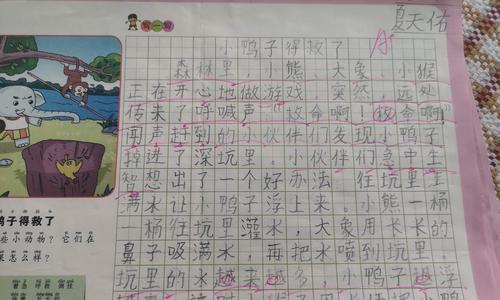 写一写
夏天佑
A
小鸭子得救了
森林里,小熊、大象、小猴
正在开心地做游戏,突然,远处
传来了呼喊声"救命啊!救命啊!"
闻声赶到的小伙伴们发现小鸭子
掉进了深坑里。小伙伴们急中生
智想出了一个好办法:往坑里
满水让小鸭子浮上来。小熊一桶
一桶往坑里灌水,大象用长长的
鼻子吸满水,再把水喷到坑里。
坑里的水越来越多,小鸭子越浮
鸭子得救了
些小动物?它们在
果怎么样?
着急 呼救